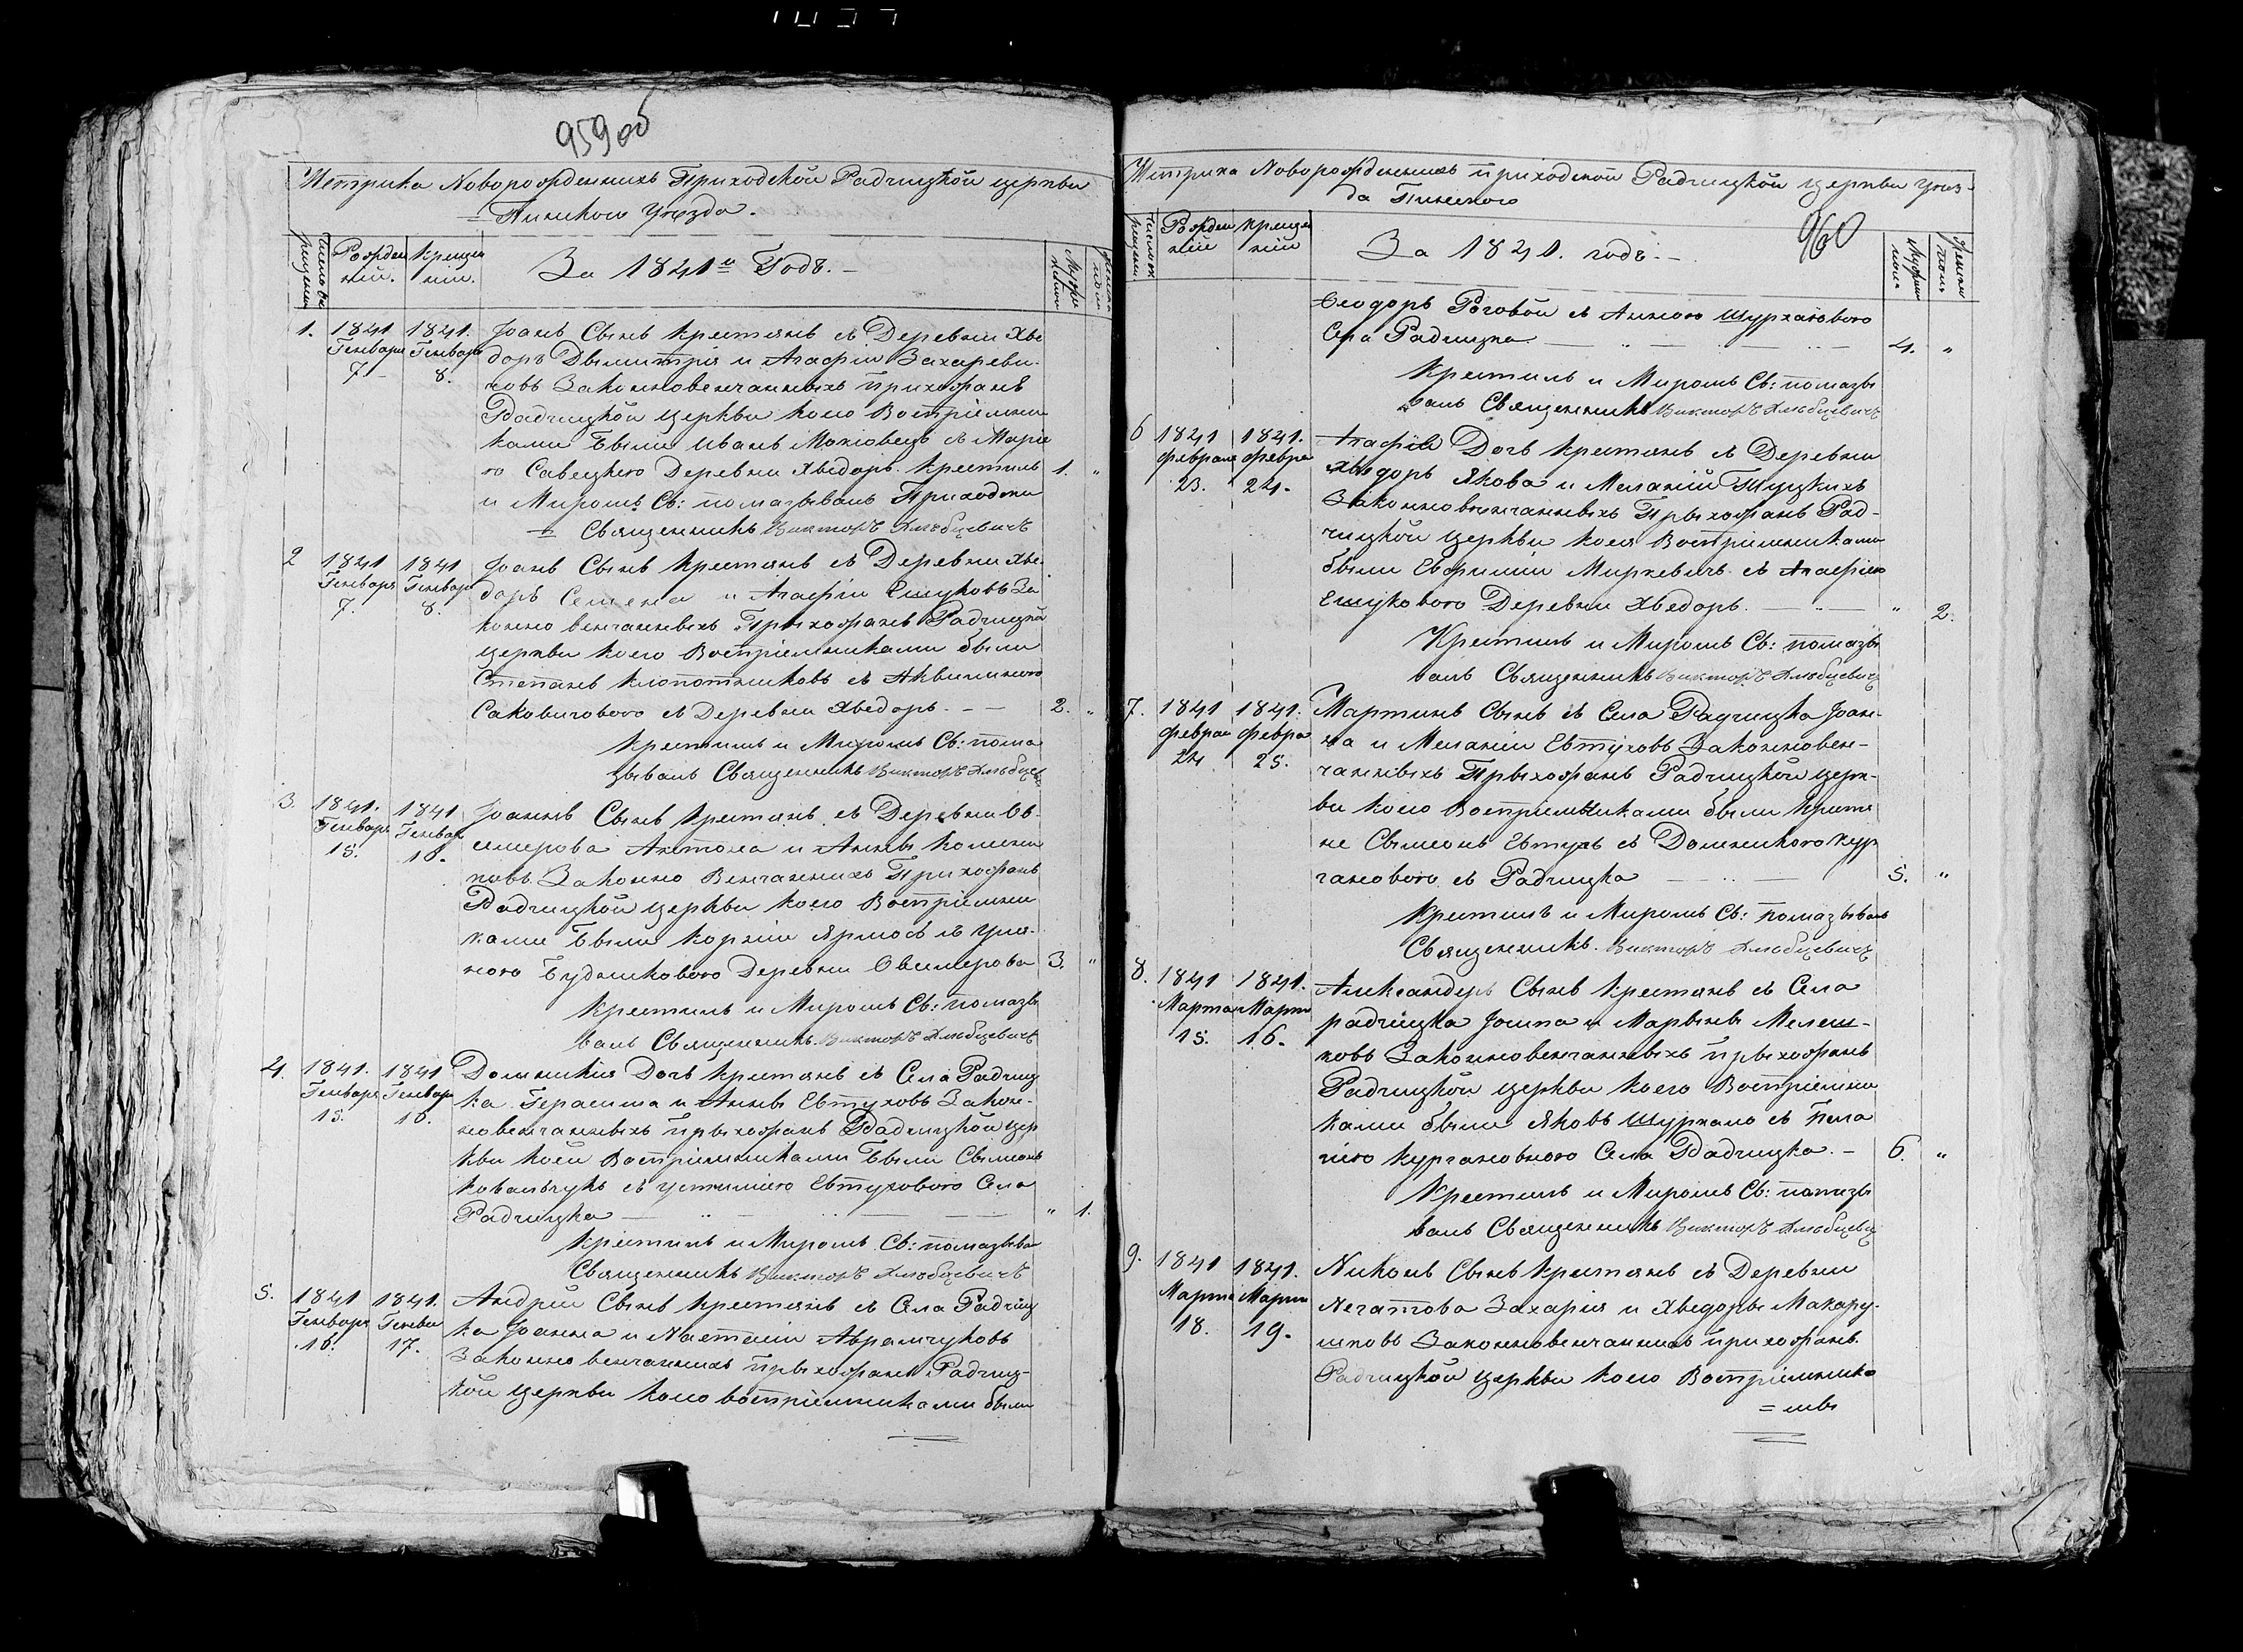 959 об
Метрика Новорожденныхъ Приходской Радчицкой церкви
Пинского Уезда.
Рожден
ній.
Креще
ній.
За 1841й Годъ.
1. 1841 Генваря 7 1841. Генваря 8. Іоанъ Сынъ Крестянъ съ Деревни Хве
доръ Дымитрія и Агафіи Захареви
човъ Законновенчанныхъ прихожанъ
Радчицкой церкви коего Воспріемни
ками были Иванъ Моховецъ съ Марiе
ю Савецкою Деревни Хведоръ. Крестилъ 1. "
и Миромъ Св: помазывалъ Приходски
й Священникъ Викторъ
2 1841 Генваря 7. 1841 Генваря 8. Іоанъ Сынъ Крестянъ съ Деревни Хве
доръ Семена и Агафіи Ешуковъ За
конно венчанныхъ Прыхожанъ Радчицкой
церкви коего Воспріемниками были
Степанъ Клопотниковъ съ Аквилиною
Саковичовою съ Деревни Хведоръ. — — 2. "
Крестилъ и Миромъ Св: пома
зывалъ Священникъ Викторъ
3. 1841. Генваря 15. 1841 Генваря 16. Іоаннъ Сынъ Крестянъ съ Деревни Ов
семерова Антона и Анны
ковъ Законно Венчанныхъ Прихожанъ
Радчицкой церкви коего Воспріемни
ками были Корній Ярмосъ съ Улія
ною Будниковою Деревни Овсемерова 3. "
Крестилъ и Миромъ Св: помазы
валъ Священникъ Викторъ
4. 1841. Генваря 15. 1841 Генваря 16. Доминикія Дочъ Крестянъ съ Села Радчиц
ка Герасима и Анны Евтуховъ Закон-
новенчанныхъ прыхожанъ Радчицкой цер
кви коей Воспріемниками были Сымеонъ
Ковальчукъ съ Устиніею Евтуховою Села
Радчицка — " — " 1.
Крестилъ и Миромъ Св: помазыва
Священникъ Викторъ
5. 1841 Генваря 16. 1841. Генва 17. Андрей Сынъ Крестянъ съ Села Радчиц
ка Іоанна и Настасіи Абрамчуковъ
Законно венчанныхъ прыхожанъ Радчиц-
кой церкви коего воспріемниками были
Метрика Новорожденныхъ приходской Радчицкой церкви Уез-
да Пинского
960
Рожден
ній
Креще
ній
За 1841. годъ.
Женски
полъ
Феодоръ Роговой съ Анною Шурхаловою
Села Радчицка — " — 4. "
Крестилъ и Миромъ Св: помазы
валъ Священникъ Викторъ
6 1841 февраля 23. 1841. февра 24. Агафія Дочъ Крестянъ съ Деревни
Хведоръ Якова и Меланіи Шуцкихъ
Законновенчанныхъ Прыхожанъ Рад-
чицкой церкви коея Воспріемниками
были Евфимій Миркевичъ съ Агафіею
Ешуковою Деревни Хведоръ. — " — " 2.
Крестилъ и Миромъ Св: помазы
валъ Священникъ Викторъ
7. 1841 феврал 24 1841. февра 25. Мартинъ Сынъ съ Села Радчицка Іоан-
на и Меланіи Евтуховъ Законновен-
чанныхъ Прыхожанъ Радчицкой церк-
ви коего Воспріемниками были Крестя
не Сымеонъ Евтухъ съ Доминикою Кур
гановою съ Радчицка — " — 5. "
Крестилъ и Миромъ Св: помазывалъ
Священникъ. Викторъ
8. 1841 Марта 15. 1841. Март 16. Александеръ Сынъ Крестянъ съ Села
Радчицка Іосипа и Марыны Мелеш-
ковъ Законновенчанныхъ прыхожанъ
Радчицкой церкви коего Воспріемни
ками были Яковъ Шурхало съ Пела
гіею Кургановною Села Радчицка. — 6. "
Крестилъ и Миромъ Св: помазы
валъ Священникъ Викторъ
9. 1841 Марта 18. 1841. Март 19. Никонъ Сынъ Крестянъ съ Деревни
Нечатова Захарія и Хведоры Макару-
шковъ Законновенчанныхъ прихожанъ.
Радчицкой церкви коего Воспріемника
= мы